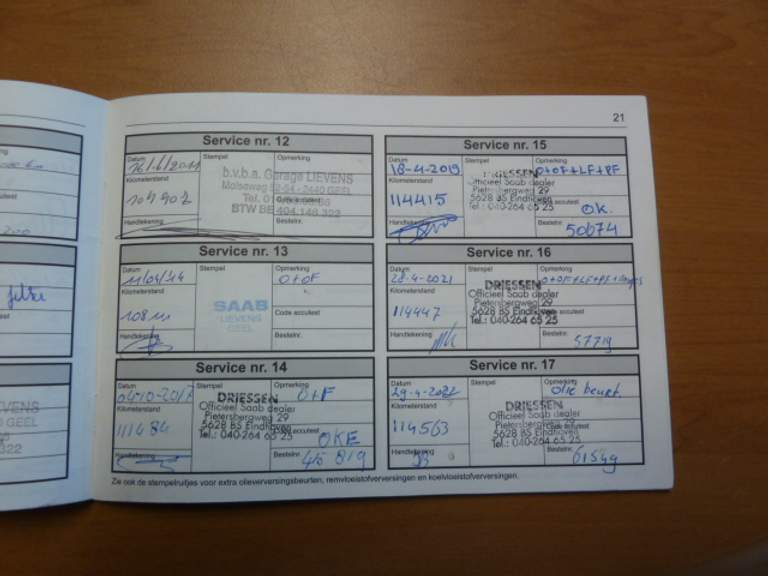 21
Service nr. 12
Datum
Stempel
Opmerking
16/6/2011
Kilometerstand
104902
b.v.b.a. Garage LIEVENS
Molseweg 92-94 - 2440 GEEL
BTW BE 404.148.322
Handtekening
Bestelnr.
Service nr. 13
Datum
Stempel
Opmerking
11/04/14
O+OF
Kilometerstand
SAAB
LIEVENS
GEEL
Code accutest
Handtekening
Bestelnr.
Service nr. 14
Datum
Stempel
Opmerking
04-10-2017
O+F
Kilometerstand
111484
DRIESSEN
Officieel Saab dealer
Pietersbergweg 29
5628 BS Eindhoven
Tel.: 040-264 65 25
OKE
Handtekening
Bestelnr.
45819
Service nr. 15
Datum
Stempel
Opmerking
18-4-2019
O+OF+LF+PF
Kilometerstand
114415
DRIESSEN
Officieel Saab dealer
Pietersbergweg 29
5628 BS Eindhoven
Tel.: 040-264 65 25
OK.
Handtekening
Bestelnr.
50674
Service nr. 16
Datum
Stempel
Opmerking
28-4-2021
Kilometerstand
114447
DRIESSEN
Officieel Saab dealer
Pietersbergweg 29
5628 BS Eindhoven
Tel.: 040-264 65 25
Handtekening
Bestelnr.
57719
Service nr. 17
Datum
Stempel
Opmerking
29-4-2022
olie beurt.
Kilometerstand
114563
DRIESSEN
Officieel Saab dealer
Pietersbergweg 29
5628 BS Eindhoven
Tel.: 040-264 65 25
Handtekening
Bestelnr.
61549
Zie ook de stempelruitjes voor extra olieverversingsbeurten, remvloeistofverversingen en koelvloeistofverversingen.